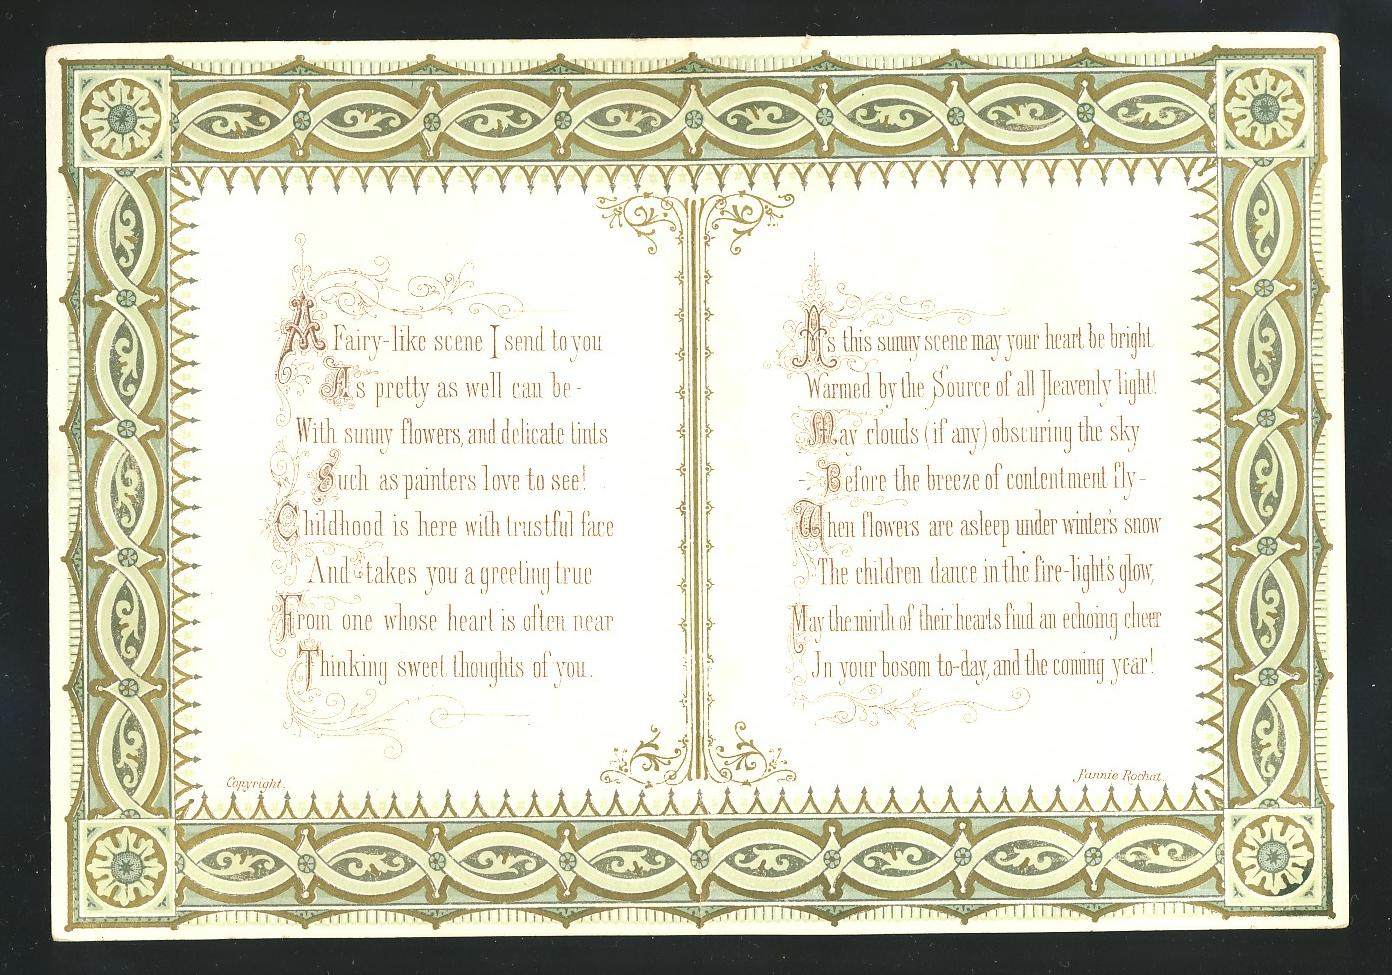 A Fairy-like scene I send to you
As pretty as well can be-
With sunny flowers, and delicate tints
Such as painters love to see!
Childhood is here with trustful face
And takes you a greeting true
From one whose heart is often near
Thinking sweet thoughts of you.
Copyright.
As this sunny scene may your heart be bright
Warmed by the Source of all Heavenly light!
May clouds (if any) obscuring the sky
-Before the breeze of contentment fly-
When flowers are asleep under winter's snow
The children dance in the fire-light's glow,
May the mirth of their hearts find an echoing cheer
In your bosom to-day, and the coming year!
Fannie Rochat.